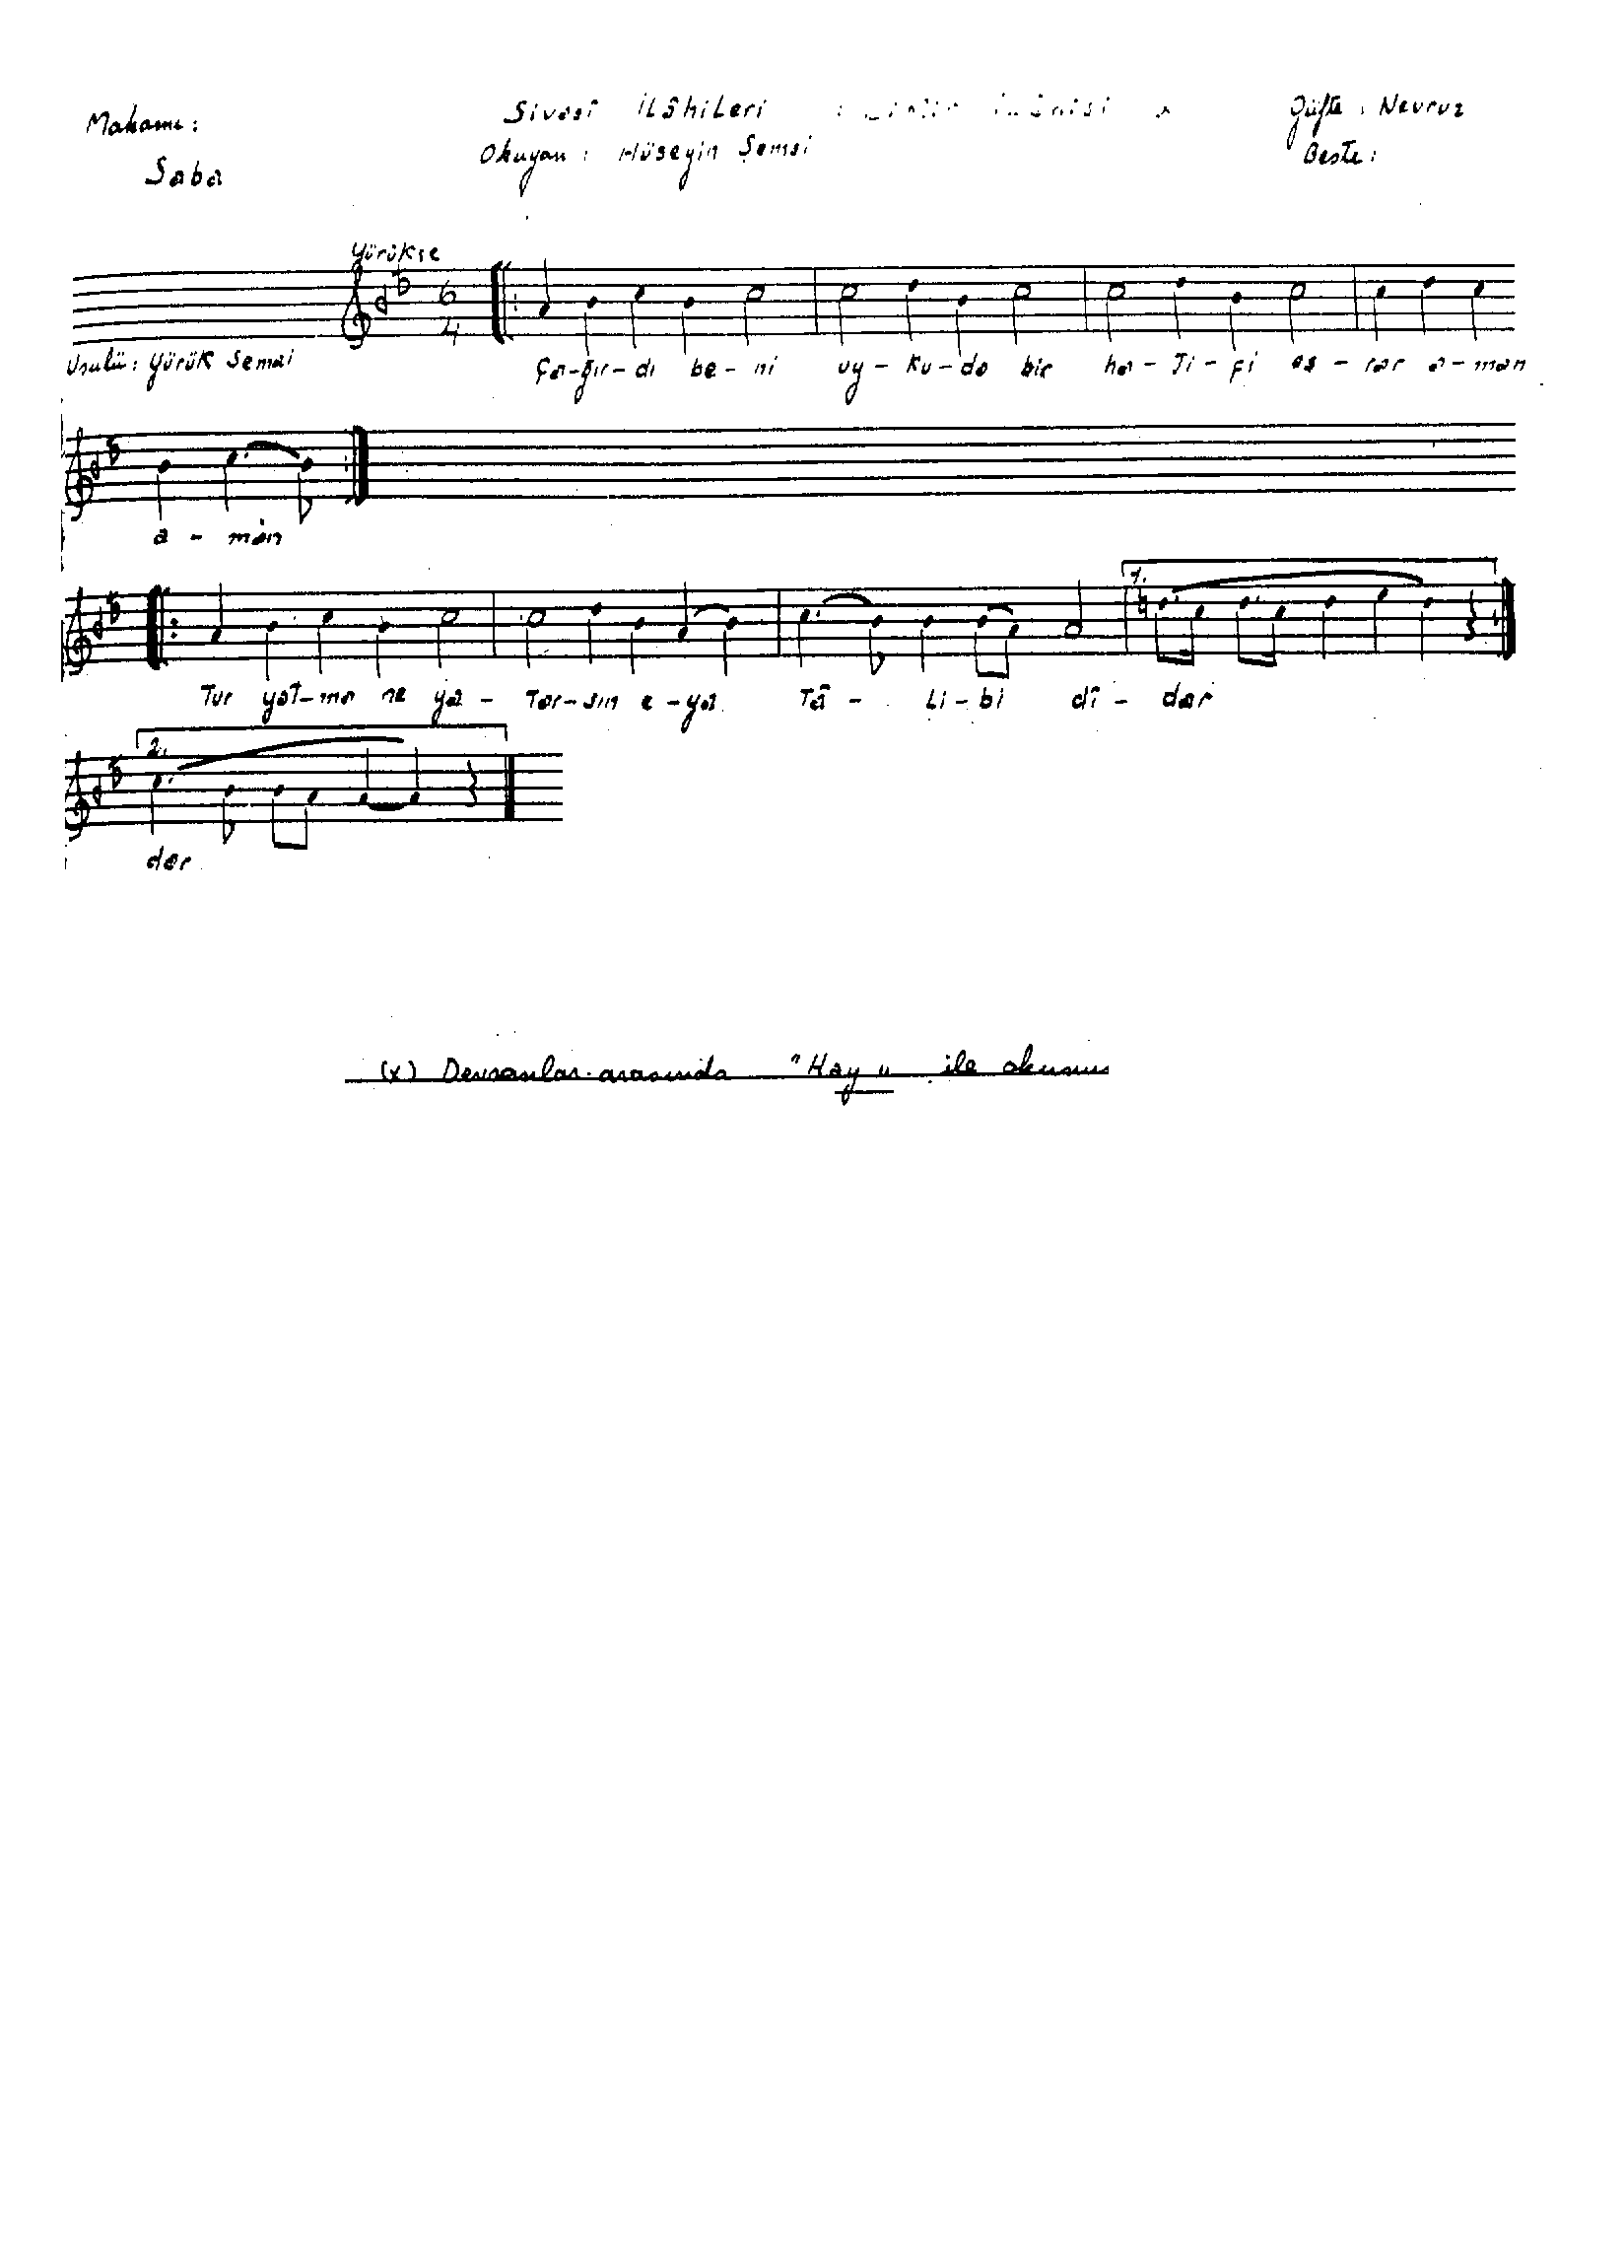 Makamı: Sivasî İLâhiLeri Güfte : Nevruz
Saba Okuyan : Hüseyin Şemsi Beste :
Yürükçe
6
4
Usulü : Yürük Semai
Ça-ğır-dı be-ni uy-ku-da bir ha-Ti-fi es-rar a-man
a-man
Tur yat-ma ne ya-Tar-sın e-ya Tâ-Li-bi dî-dar
1.
2.
dar
(x) Devranlar arasında "Hay" ile okunur